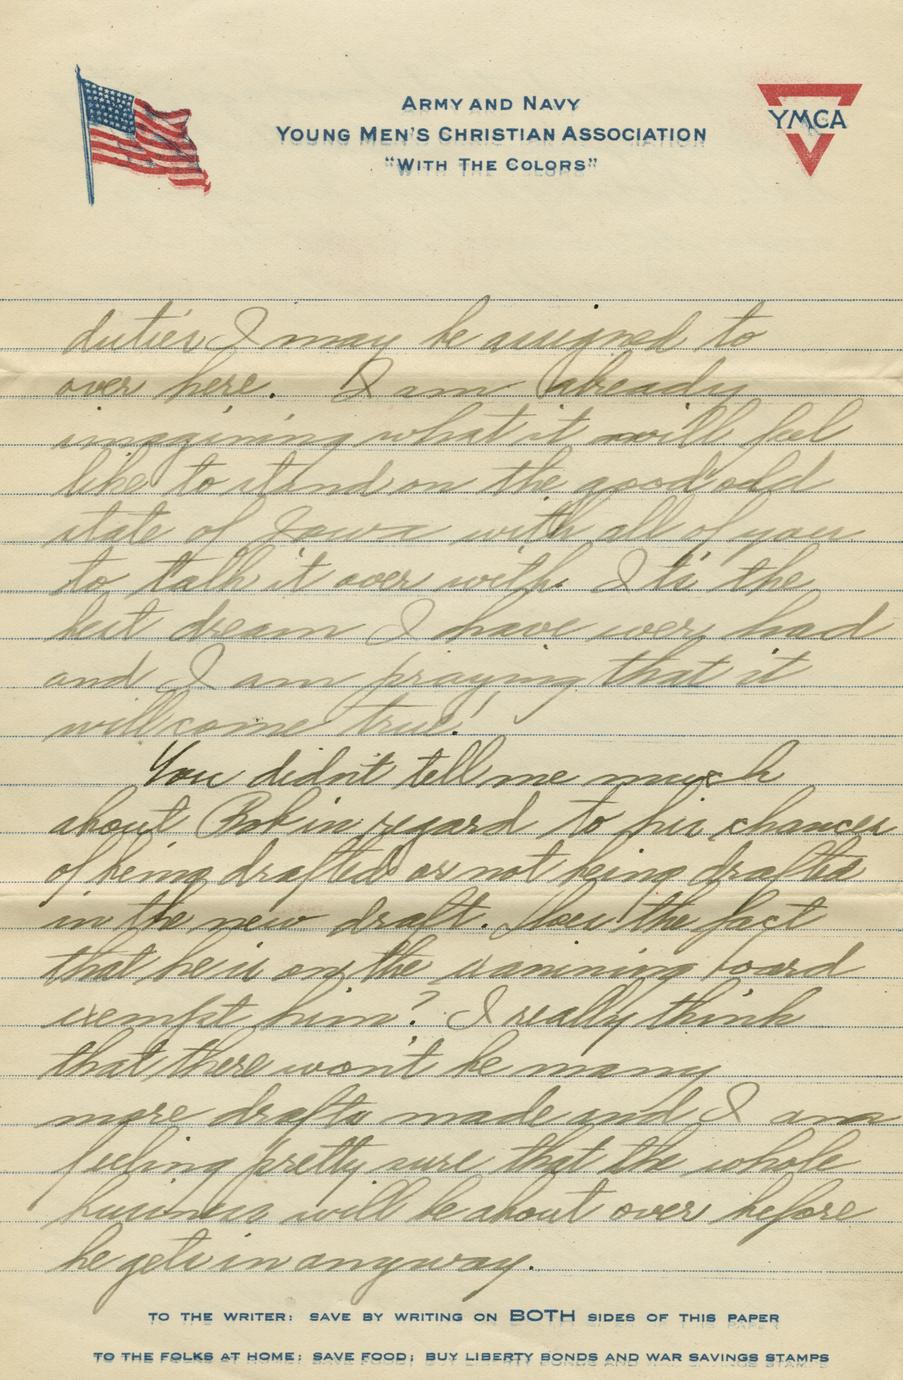 ARMY AND NAVY
YOUNG MEN'S CHRISTIAN ASSOCIATION
"WITH THE COLORS"
YMCA
duties I may be assigned to
over here. I am already
imagining what it will feel
like to stand on the good old
state of Iowa with all of you
to talk it over with. It's the
best dream I have ever had
and I am praying that it
will come true!
You didn't tell me much
about Bob in regard to his chances
of being drafted or not being drafted
in the new draft. Does the fact
that he is on the board
exempt him? I really think
that there won't be many
more drafts made and I am
feeling pretty sure that the whole
business will be about over before
he gets in anyway.
TO THE WRITER: SAVE BY WRITING ON BOTH SIDES OF THIS PAPER
TO THE FOLKS AT HOME: SAVE FOOD; BUY LIBERTY BONDS AND WAR SAVINGS STAMPS